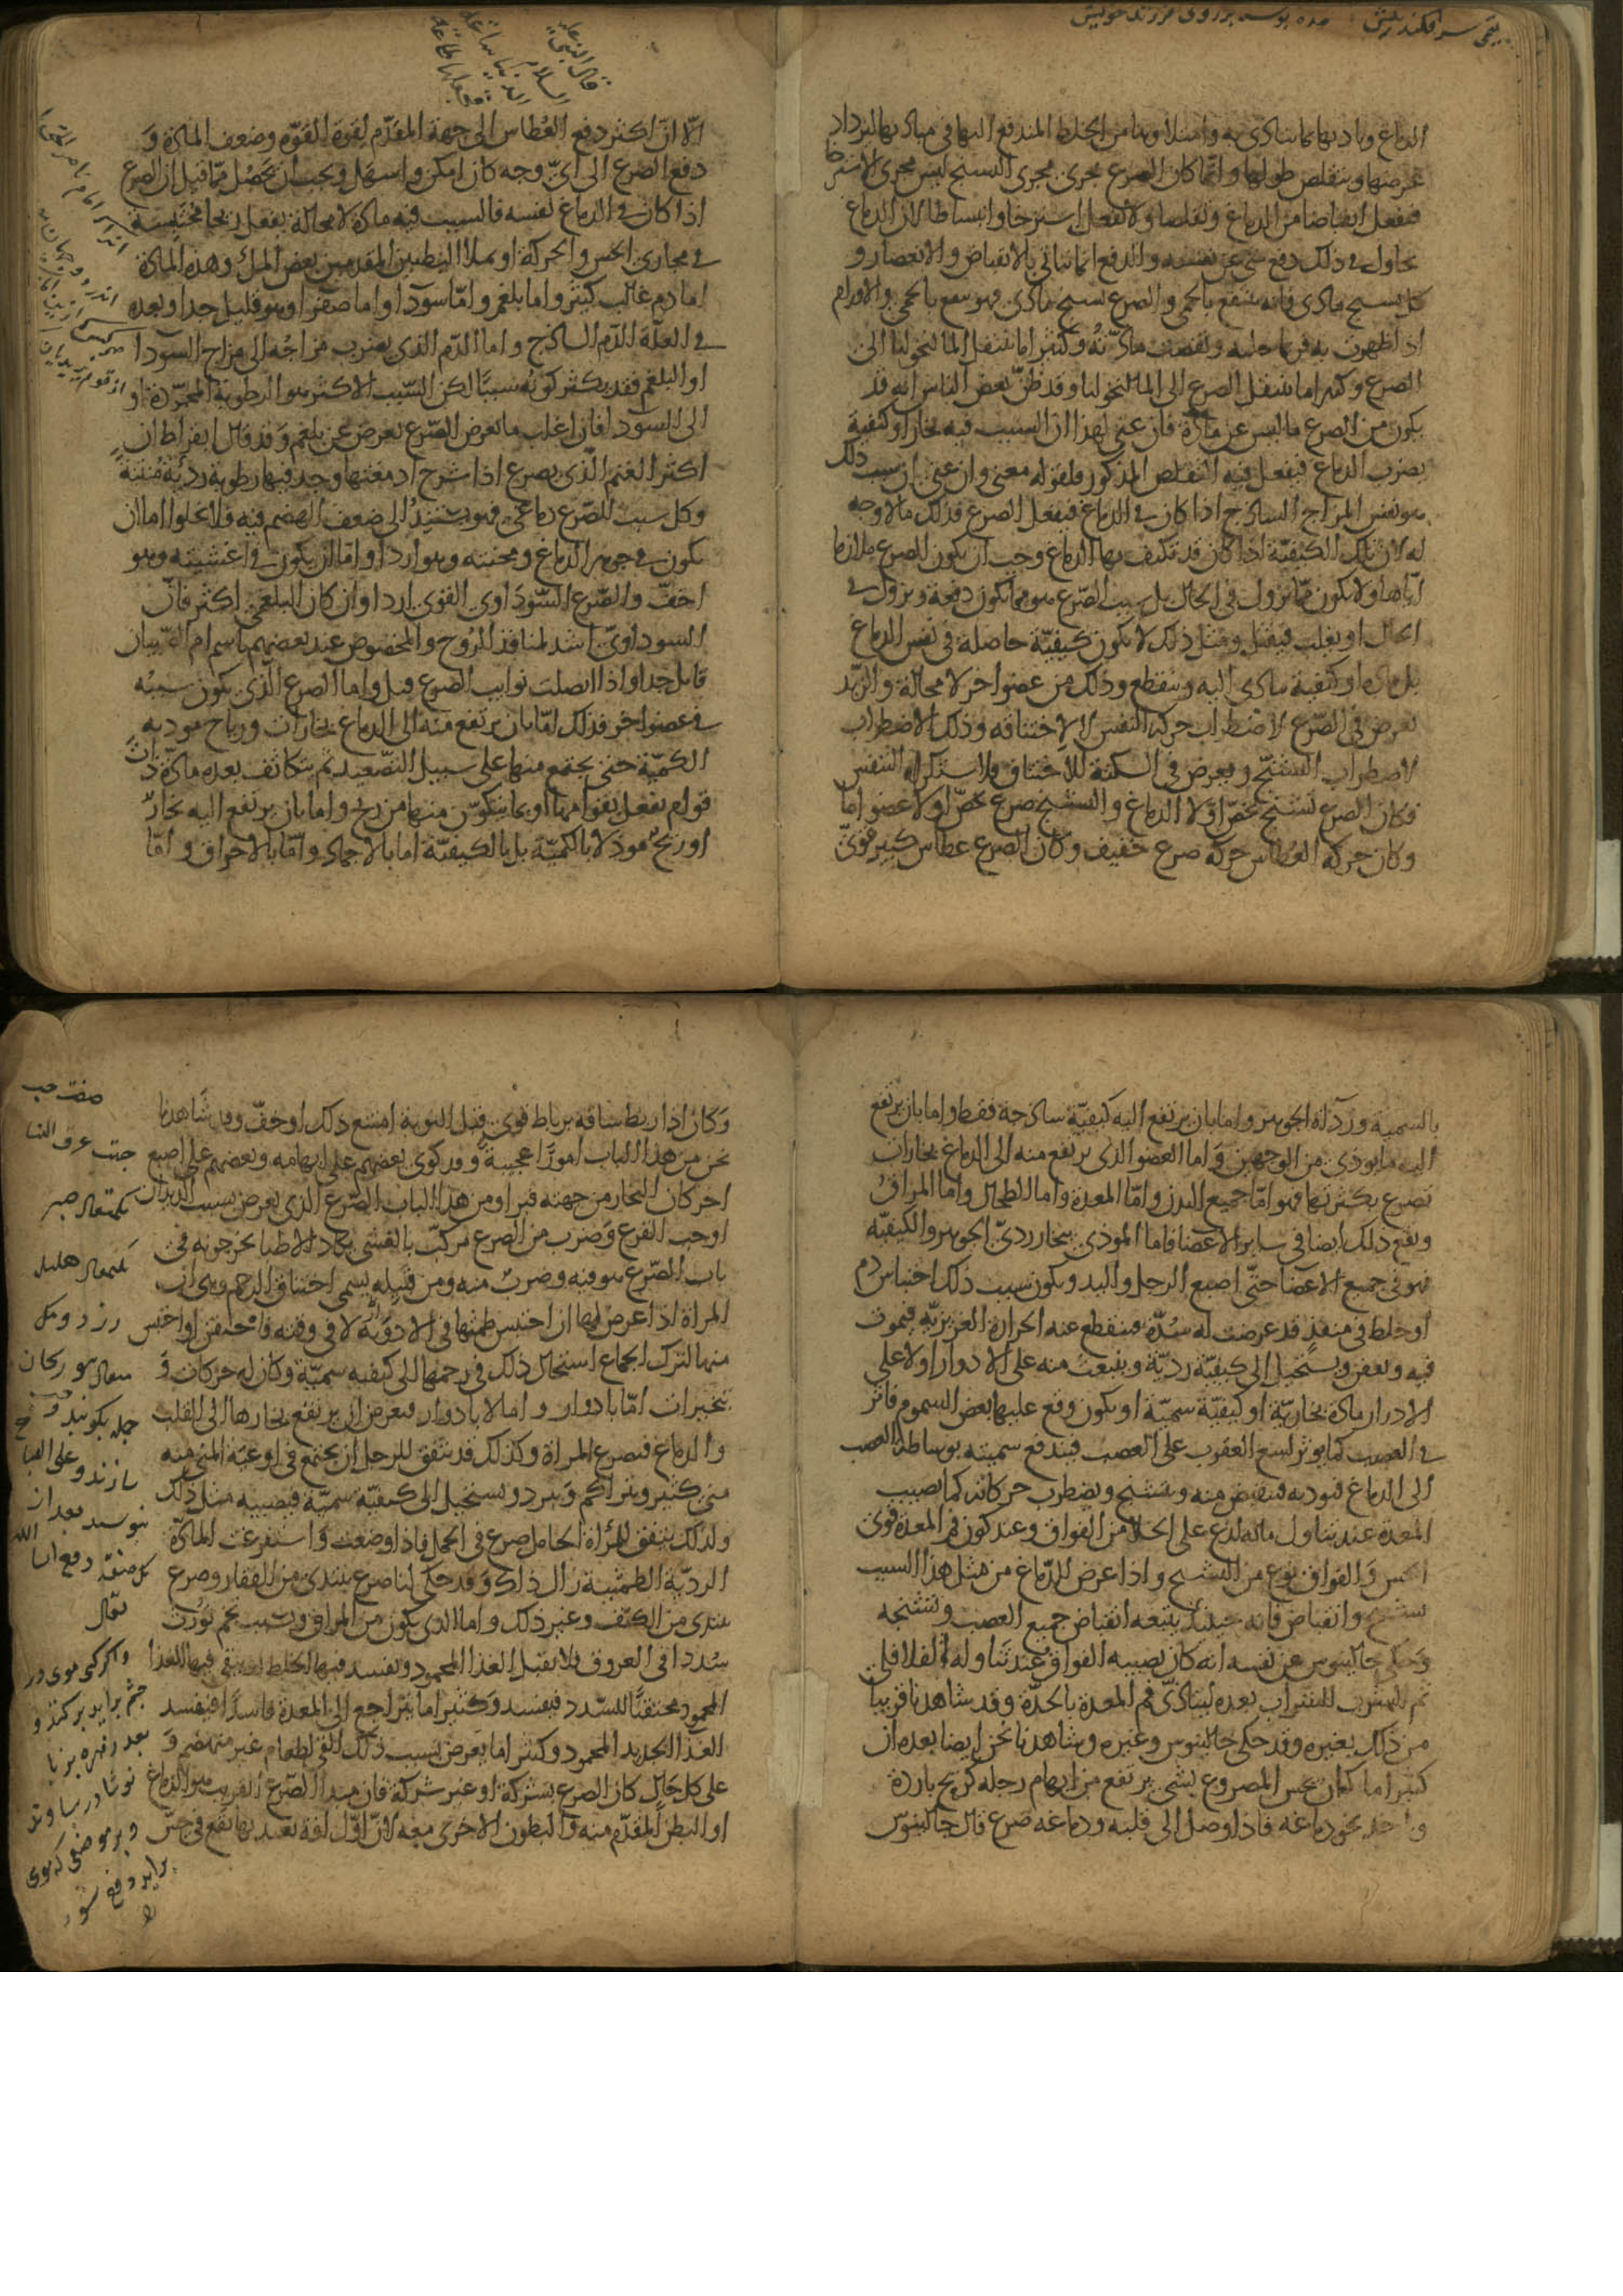 الدماغ وباديها كما يتأدى به وامتلاؤها من الخلط المندفع اليها في مباديها ليزداد
عرضها وينقلص طولها وانما كان الصرع يجري مجرى التشنج ليس مجرى الاسترخا
فيفعل انقباضا من الدماغ وتقلصا ولا يفعل استرخا وانبساطا لان الدماغ
يحاول في ذلك دفع شي عن نفسه والدفع انما يتاتى بالانقباض والانعصار و
كل تشنج مادي فانه ينتفع بالحمى والصرع تشنج مادي فهو ينتفع بالحمى والاورام
اذا ظهرت به فربما حلته ونقصت مادته وكثيرا ما ينتقل المالنخوليا الى
الصرع وكثيرا ما ينتقل الصرع الى المالنخوليا وقد ظن بعض الناس انه قد
يكون من الصرع ما ليس عن مادة فان عنى بهذا ان السبب فيه بخار او كيفية
يضرب الدماغ فيفعل فيه التقلص المذكور فلقوله معنى وان عنى ان سبب ذلك
هو نفس المزاج الساذج اذا كان في الدماغ فيفعل الصرع فذلك ما لا وجه
له لان تلك الكيفيّة اذا كان قد تكيف بها الدماغ وجب ان يكون الصرع ملازما
اياها ولا يكون مما يزول في الحال بل سبب الصرع هو مما يكون دفعة ويزول في
الحال او يغلب فيقتل ومثل ذلك لا يكون كيفيّة حاصلة في نفس الدماغ
بل مادة او كيفية يتادى اليه وينقطع وذلك من عضو اخر لا محالة والزبد
يعرض في الصرع لاضطراب حركة النفس لا لاختناقه وذلك الاضطراب
لاضطراب التشنج ويعرض في السكتة للاختناق ولاستكراه التنفس
فكان الصرع تشنج يخص اولا الدماغ والتشنج صرع يخص اولا عضوا ما
وكان حركة العطاس حركة صرع خفيف وكان الصرع عطاس كبير قوي
الا ان اكثر دفع العُطاس الى جهة المقدّم لقوة القوة وضعف المادة وَ
دفع الصرع الى ايّ وجه كان امكن واسهل ويجب ان يَحصُل مما قيل ان الصرع
اذا كان في الدماغ نفسه فالسبب فيه مادة لا محالة يفعل ريحا محتبسة
في مجاري الحس والحركة او يملا البطنين المقدمين بعض الملء وهذه المادة
اما دم غالب كثير واما بلغم وامّا سودا واما صفرا وهو قليل جدا وبعده
في العلّة الدّم الساذج واما الدّم الذي يضرب مزاجه الى مزاج السودا
او البلغم فقد يكثر كونه سببا لكن السّبب الاكثر هو الرطوبة المجرّدة او
الى السودا فان اغلب ما يعرض الصّرع يعرض عن بلغم وقد قال ابقراط ان
اكثر الغنم الّذي يصرع اذا شرح ادمغتها وجد فيها رطوبة رديّة منتنة
وكل سبب للصّرع دماغي فهو يستند الى ضعف الهضم فيه فلا يخلوا اما ان
يكون في جوهر الدماغ ومخيته وهو اردا واما ان يكون في اغشيته وهو
اخفّ والصّرع السّوداوي القوي اردا وان كان البلغمي اكثر فان
السوداويّ اشد لمنافذ الروح والمخصوص عند بعضهم باسم ام الصبيان
قاتل جدا واذا اتصلت نوايب الصرع قتل واما الصرع الّذي يكون سببه
في عضو اخر فذلك امّا بان يرتفع منه الى الدماغ بخارات ورياح موديه
الكميّة حتى يجتمع منها على سبيل التّصعيد ثم يتكاثف بعده مادّة ذات
قوام يفعل بقوامها او بما يتكوّن منها من ريح واما بان يرتفع اليه بخارٌ
او ريح موذ لا بالكميّة بل بالكيفيّة اما بالاجماد وامّا بالاحراق وامّا
بالسمية ورداة الجوهر واما بان يرتفع اليه كيفيّة ساذجة فقط واما بان يرتفع
اليه ما يوذي من الوجهين وَاما العضو الذي يرتفع منه الى الدماغ بخارات
تصرع بكثرتها فهو امّا جميع البدن وامّا المعدة واما الطحال واما المراق
ويقع ذلك ايضا في ساير الاعضا فاما الموذي ببخار رديّ الجوهر والكيفيّة
فهو في جميع الاعضا حتّى اصبع الرجل واليد ويكون سبب ذلك احتباس دم
او خلط في منفذٍ قد عرضت له سُدّة فينقطع عنه الحرارة الغريزيّة فيموت
فيه ويعفن ويستحيل الى كيفيّة رديّة وينبعث منه على الادوار او لا على
الادوار مادة بخاريّة او كيفيّة سميّة او يكون وقع عليها بعض السموم فاثر
في العصب كما يوثر لسع العقرب على العصب فيندفع سميته بوساطة العصب
الى الدماغ فيوديه فينقبض منه ويتشنج ويضطرب حركاته كما يصيب
المعدة عند تناول ماله لذع على الخلا من الفواق وعند كون فم المعدة قوى
الحس وَالفواق نوع من التشنج واذا عرض للدّماغ من مثل هذا السبب
تشنج وانقباض فانه حينئذٍ يتبعه انقباض جميع العصب وتشنجه
وَحكى جالينوس عن نفسه انه كان يصيبه الفواق عند تناوله الفلافلي
ثم للشرب للشراب بعده لتاذّي فم المعدة بالحدّة وقد شاهدنا قريبا
من ذلك بغيره وقد حكى جالينوس وغيره وشاهدنا نحن ايضا بعده ان
كثيرا ما كان يحس المصروع بشي يرتفع من ابهام رجله كريح باردة
وياخذ نحو دماغه فاذا وصل الى قلبه ودماغه صرع قال جالينوس
وَكان اذا ربط ساقه برباط قوي قبل النوبة امتنع ذلك او خفّ وقد شاهدنا
نحن من هذا الباب امورًا عجيبة وقد كوى بعضهم على ابهامه وبعضهم على اصبع
اخر كان البخار من جهته فبرا ومن هذا الباب الصّرع الذي يعرض بسبب الديدان
او حب القرع وَضرب من الصرع مركب بالغشى يكاد الاطبا يخرجونه في
باب الصّرع هو فيه وضربٌ منه ومن قبيله يسمى اختناق الرحم وهي ان
المراة اذا عرض لها ان احتبس طمثها في الادوية لا في وقته فاحتقن او احتبس
منها لترك الجماع استحال ذلك في رحمها الى كيفيه سميّة وكان له حركات وَ
تبخيرات امّا بادوار واما لا بادوار فيعرض ان يرتفع بخارها الى القلب
والدماغ فيصرع المراة وكذلك قد يتفق للرجل ان يجتمع في اوعيّة المني منه
منى كثير ويتراكم وَيبرد ويستحيل الى كيفيّة سميّة فيصيبه مثل ذلك
ولذلك يتفق للمراة الحامل صرع في الحمل فاذا وضعت وَاستفرغت المادّة
الرديّة الطمثية زال ذلك وَقد حكي لنا صرع يبتدي من الفقار وصرع
يبتدي من الكتف وغير ذلك واما الذي يكون من المراق وبسبب تخم تورث
سُددا في العروق فلا يقبل الغذا المحمود ويفسد فيها الخلط او يبقى فيها الغذا
المحمود محتقنًا للسّدد فيفسد وَكثيرا ما يتراجع الى المعدة فاسدًا فيفسد
الغذا الجديد المحمود وكثيرا ما يعرض بسبب ذلك القي لطعام غير منهضم وَ
على كل حال كان الصرع بشركة او غير شركة فان مبدا الصّرع القريب هو الدماغ
او البطن المقدّم منه والبطون الاخرى معه لانّ اوّل افة يعتد بها تقع في حسّ
صفت حب
جهت عرق النسا
يكمثقال صبر
يكمثقال هليله
زرد ومكى
مثقال سورنجان
جمله بكوبند وحب
سازند وعلى الصبا